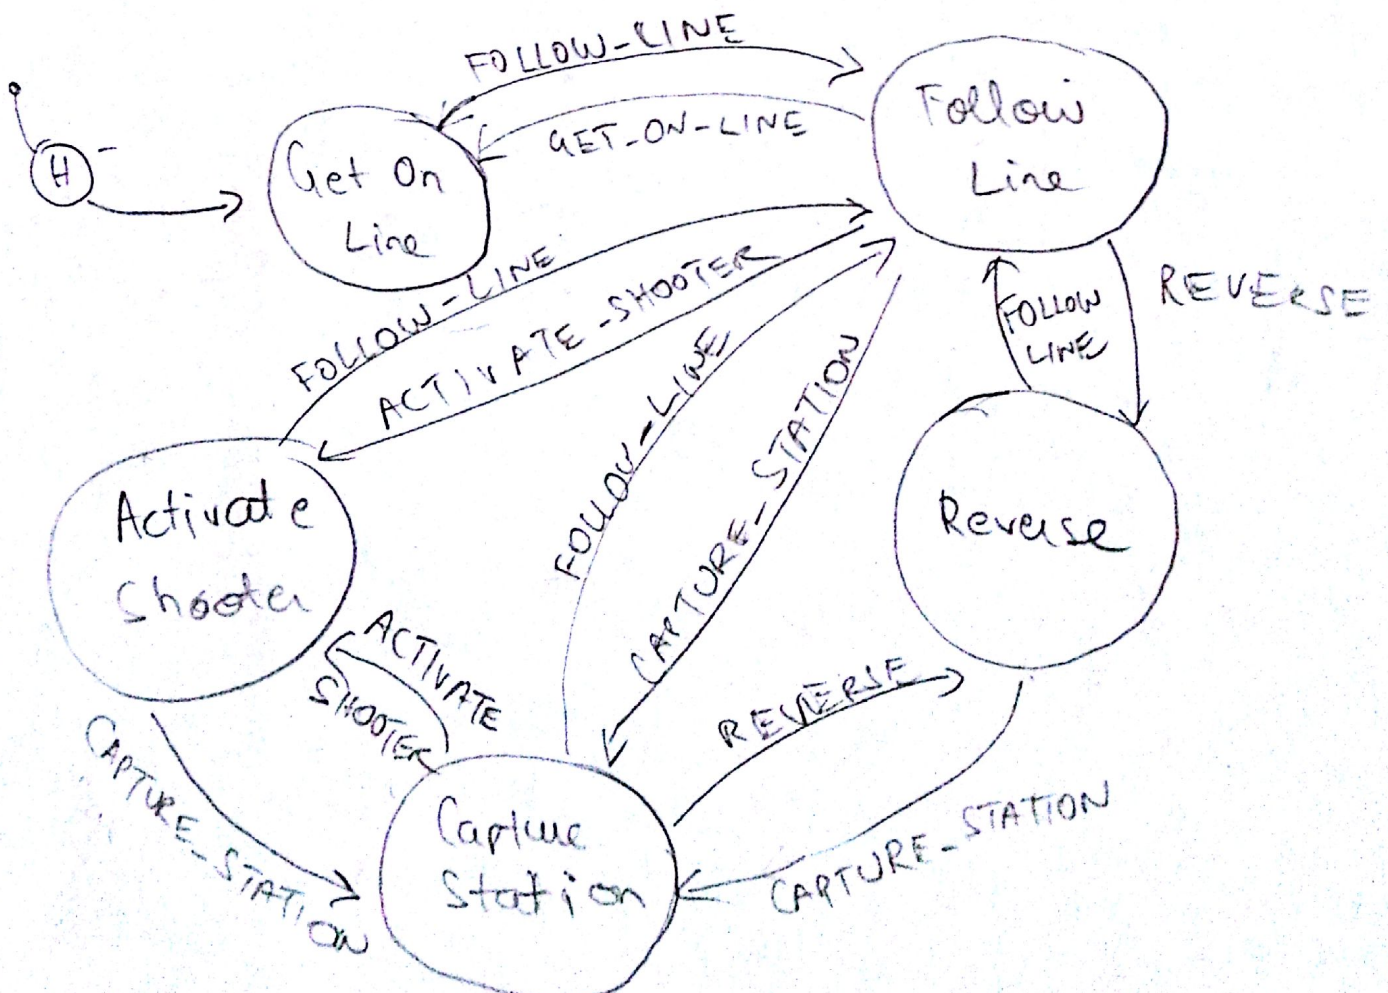 FOLLOW-LINE
H
Get On
Line
GET-ON-LINE
Follow
Line
FOLLOW-LINE
ACTIVATE-SHOOTER
FOLLOW
LINE
REVERSE
FOLLOW-LINE
CAPTURE_STATION
Activate
Shooter
Reverse
ACTIVATE
SHOOTER
REVERSE
CAPTURE_STATI
ON
Capture
Station
CAPTURE_STATION